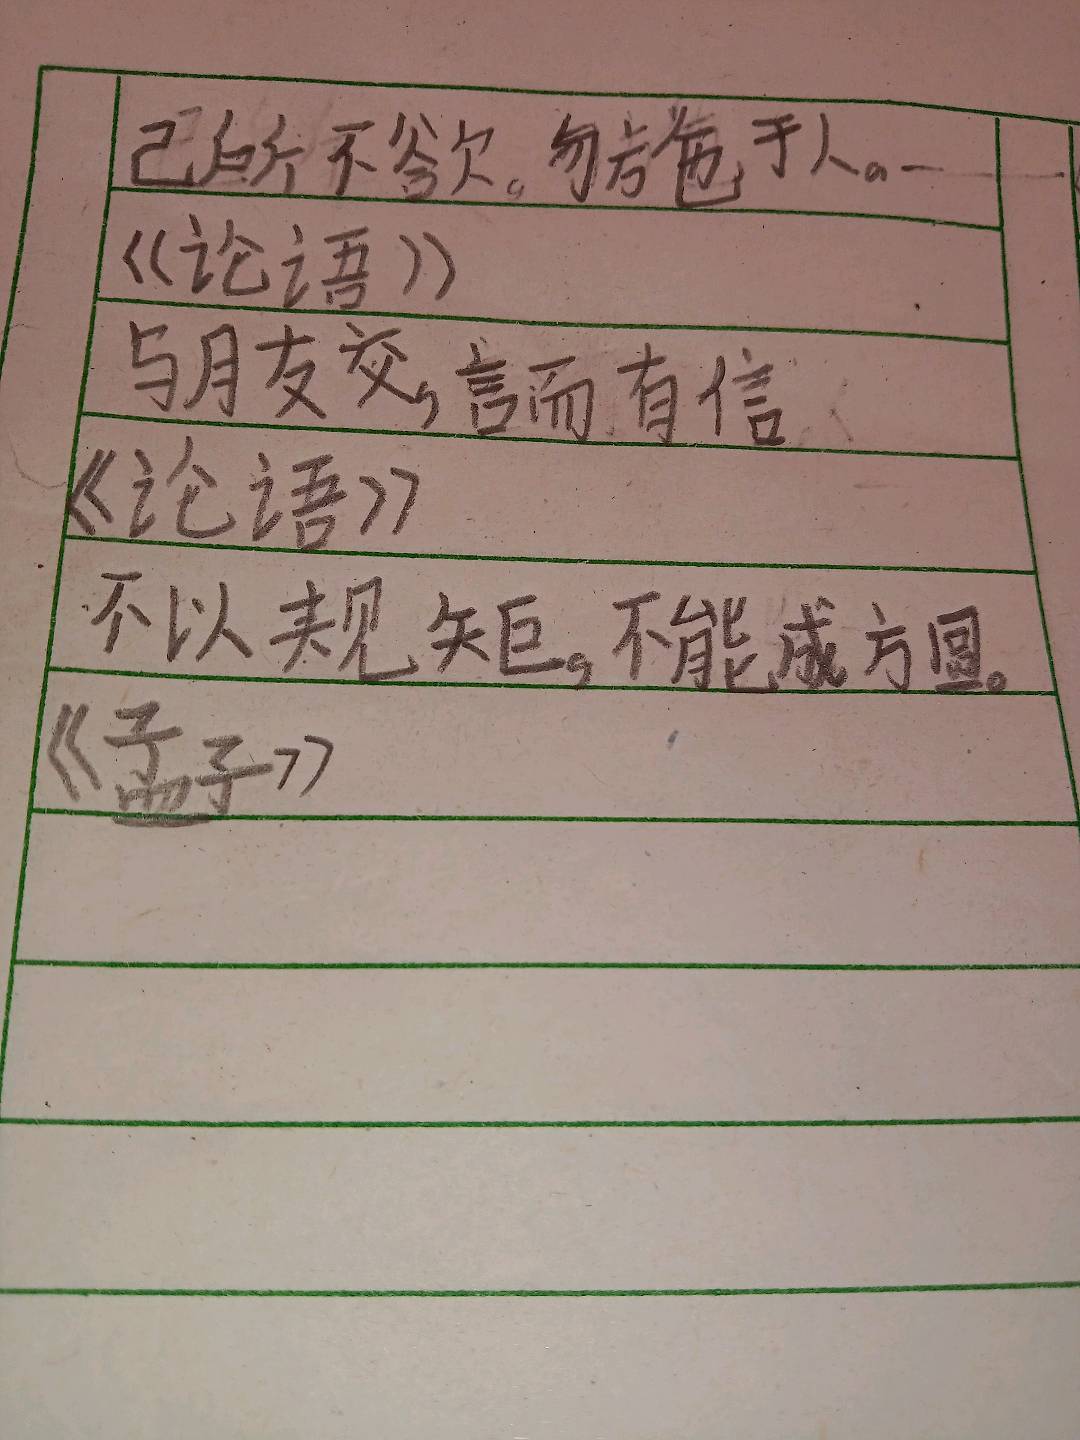 己所不欲，勿施于人。一
《论语》
与月友交，言而有信
《论语》
不以规矩，不能成方圆。
《孟子》